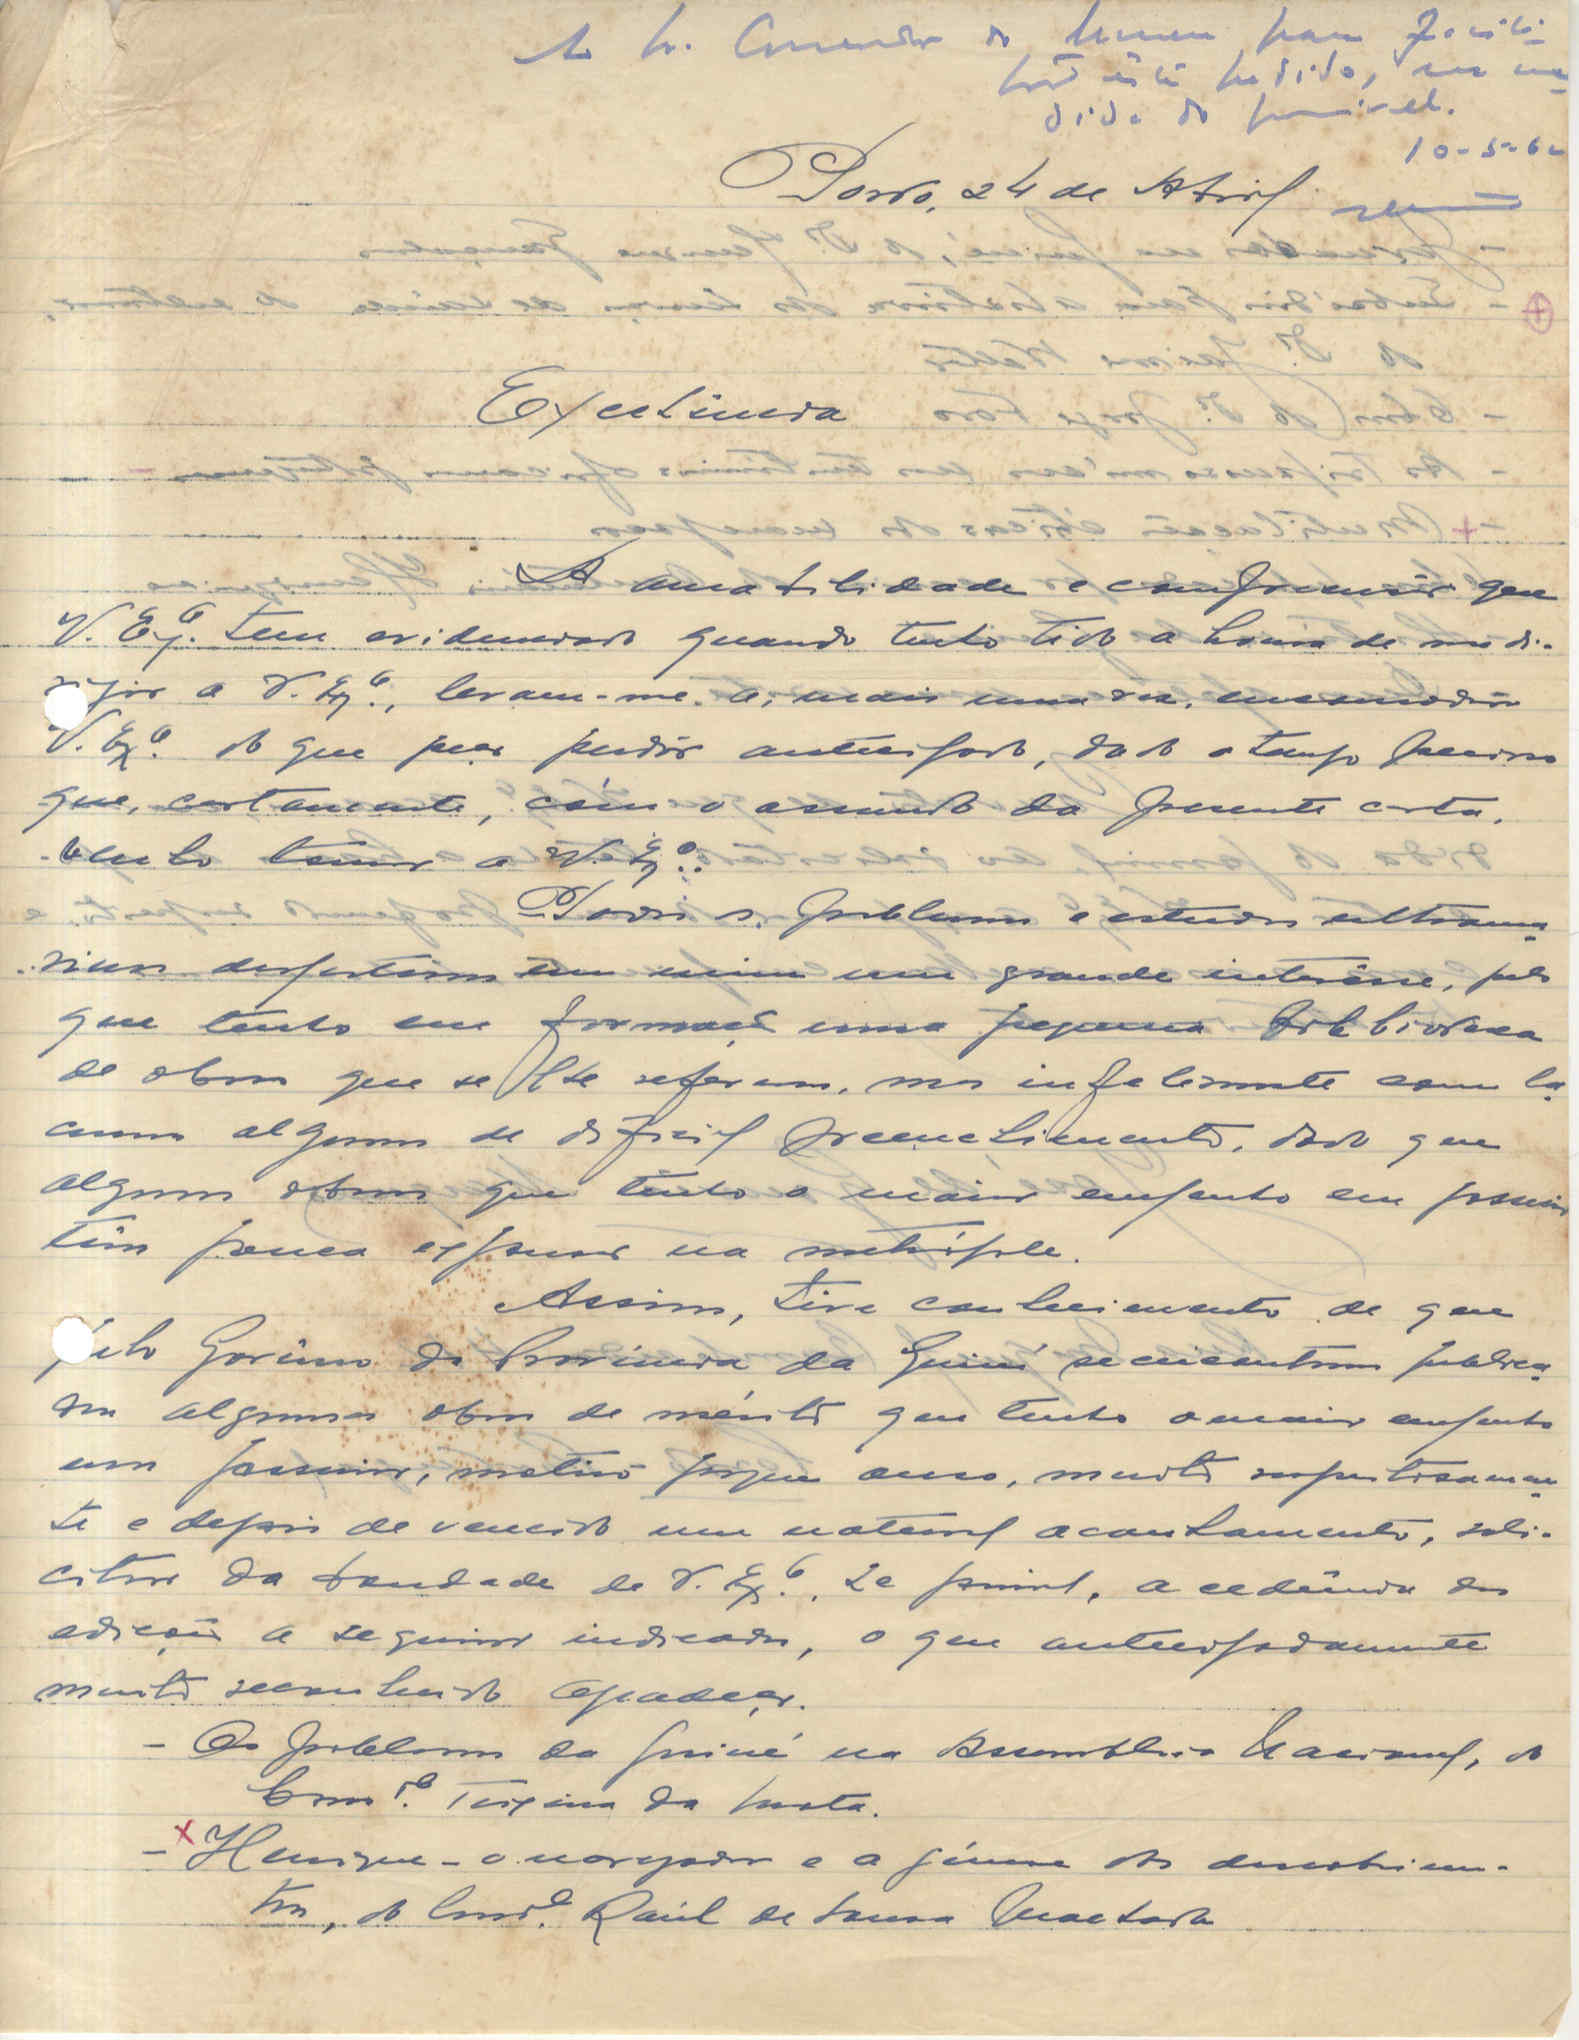 Ao Sr. Conservador do Museu para
este pedido, na me-
dida do possível.
10-5-62
Porto, 24 de Abril
Excelência
A amabilidade e compreensão que
V. Exª. tem evidenciado quando tenho tido a honra de me di-
rigir a V. Exª., levam-me a, mais uma vez, incomodar
V. Exª. do que peço perdão antecipado, dado o tempo precioso
que, certamente, com o assunto da presente carta,
venho tomar a V. Exª..
Todos os problemas e estudos ultrama-
rinos despertam em mim um grande interêsse, pelo
que tenho em formação uma pequena biblioteca
de obras que se lhe referem, mas infelizmente com la-
cunas algumas de difícil preenchimento, dado que
algumas obras que tenho o maior empenho em possuir
têm pouca expansão na metrópole.
Assim, tive conhecimento de que
pelo Govêrno da Província da Guiné se encontram publica-
das algumas obras de mérito que tenho o maior empenho
em possuir, motivo porque ouso, muito respeitosamen-
te e depois de vencido um natural acanhamento, soli-
citar da bondade de V. Exª., se possível, a cedência das
edições a seguir indicadas, o que antecipadamente
muito reconhecido agradeço.
- Os problemas da Guiné na Assembleia Nacional, do
Comtª. Teixeira da Mota.
- x Henrique - o navegador e a génese dos descobrimen-
tos, do Comdª. Raúl de Sousa Machado